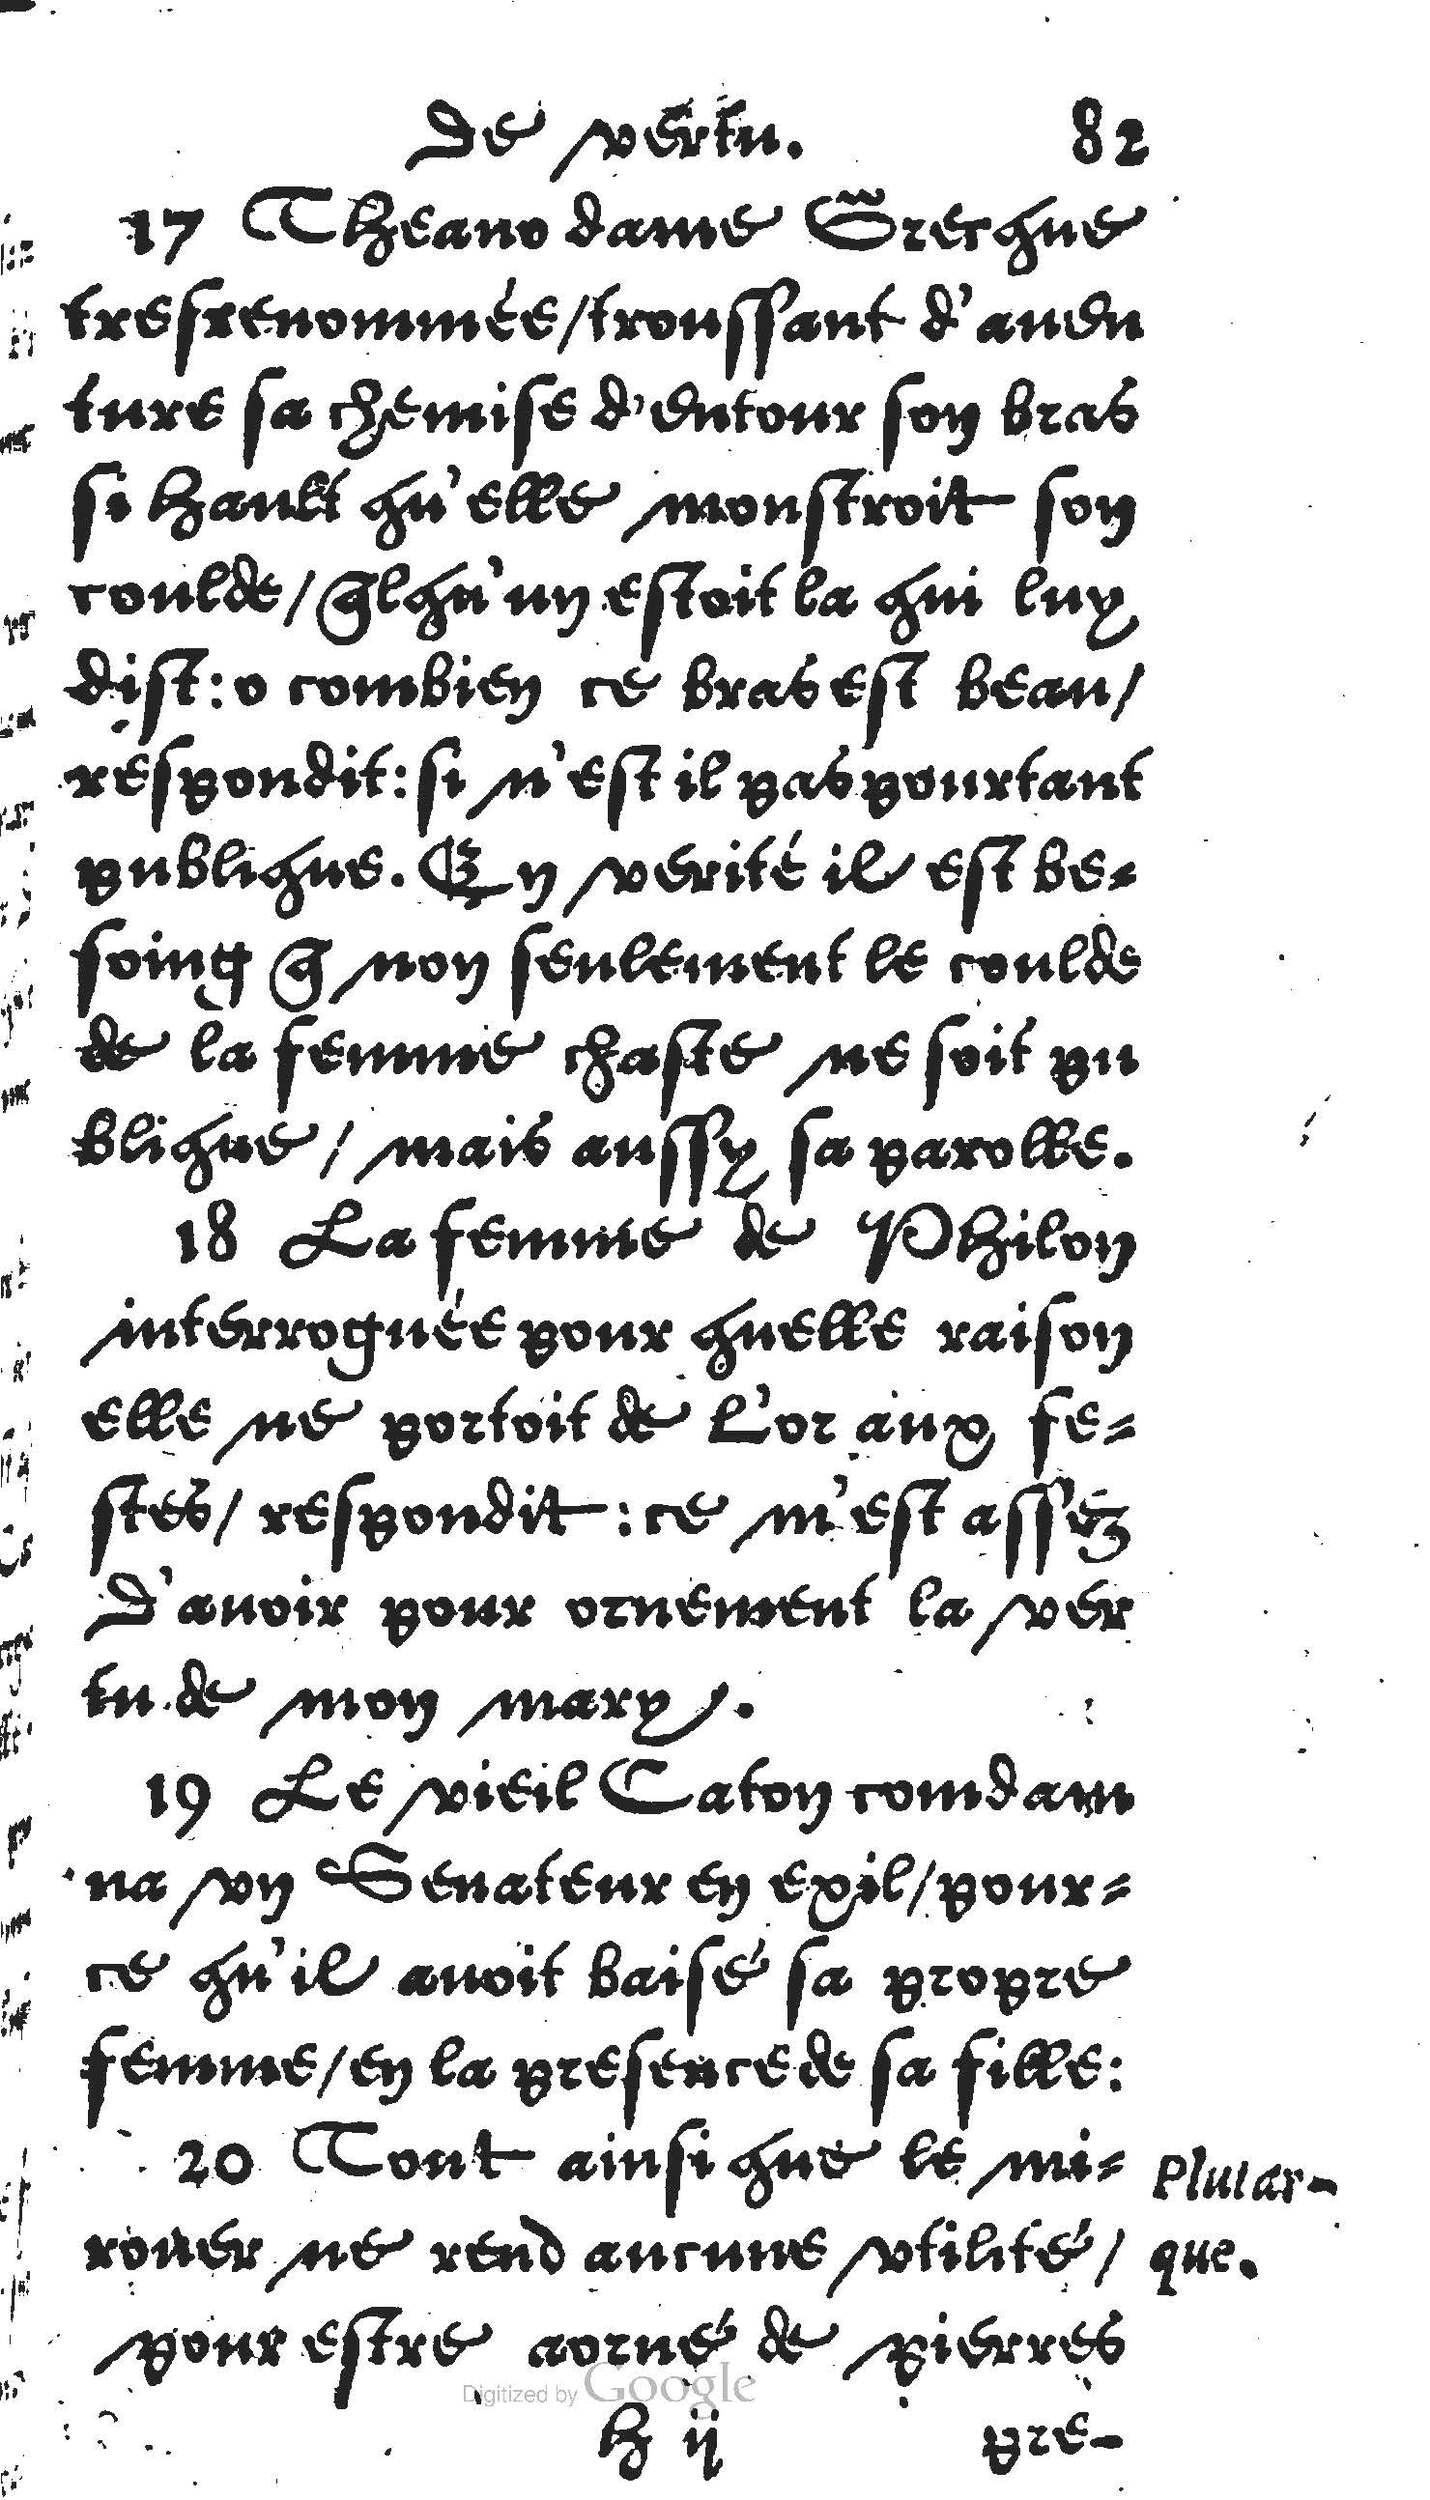 De vertu. 82
17 Theano dame Grecque
tresrenommée/troussant d'auen
ture sa chemise d'entour son bras
si hault qu'elle monstroit son
coulde/ q̃lqu'un estoit la qui luy
dist: o combien ce bras est beau/
respondit: si n'est il pas pourtant
publique. En verité il est be-
soing q̃ non seulement le coulde
de la femme chaste ne soit pu
blique/ mais aussy sa parolle.
18 La femme de Philon
interroguée pour quelle raison
elle ne portoit de L'or aux fe-
stes/ respondit: ce m'est assez
D'auoir pour ornement la ver
tu de mon mary.
19 Le vieil Caton comdam
na vn Senateur en exil/pour-
ce qu'il auoit baisé sa propre
femme/en la presence de sa fille:
20 Tout ainsi que le mi-
rouer ne rend aucune vtilité/
pour estre aorné de pierres
h ij pre-
Plutar-
que.
Digitized by Google